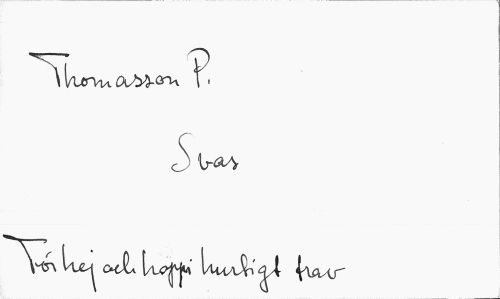 Thomasson P.
Svas
Tör hej och hoppi hurtigt trav